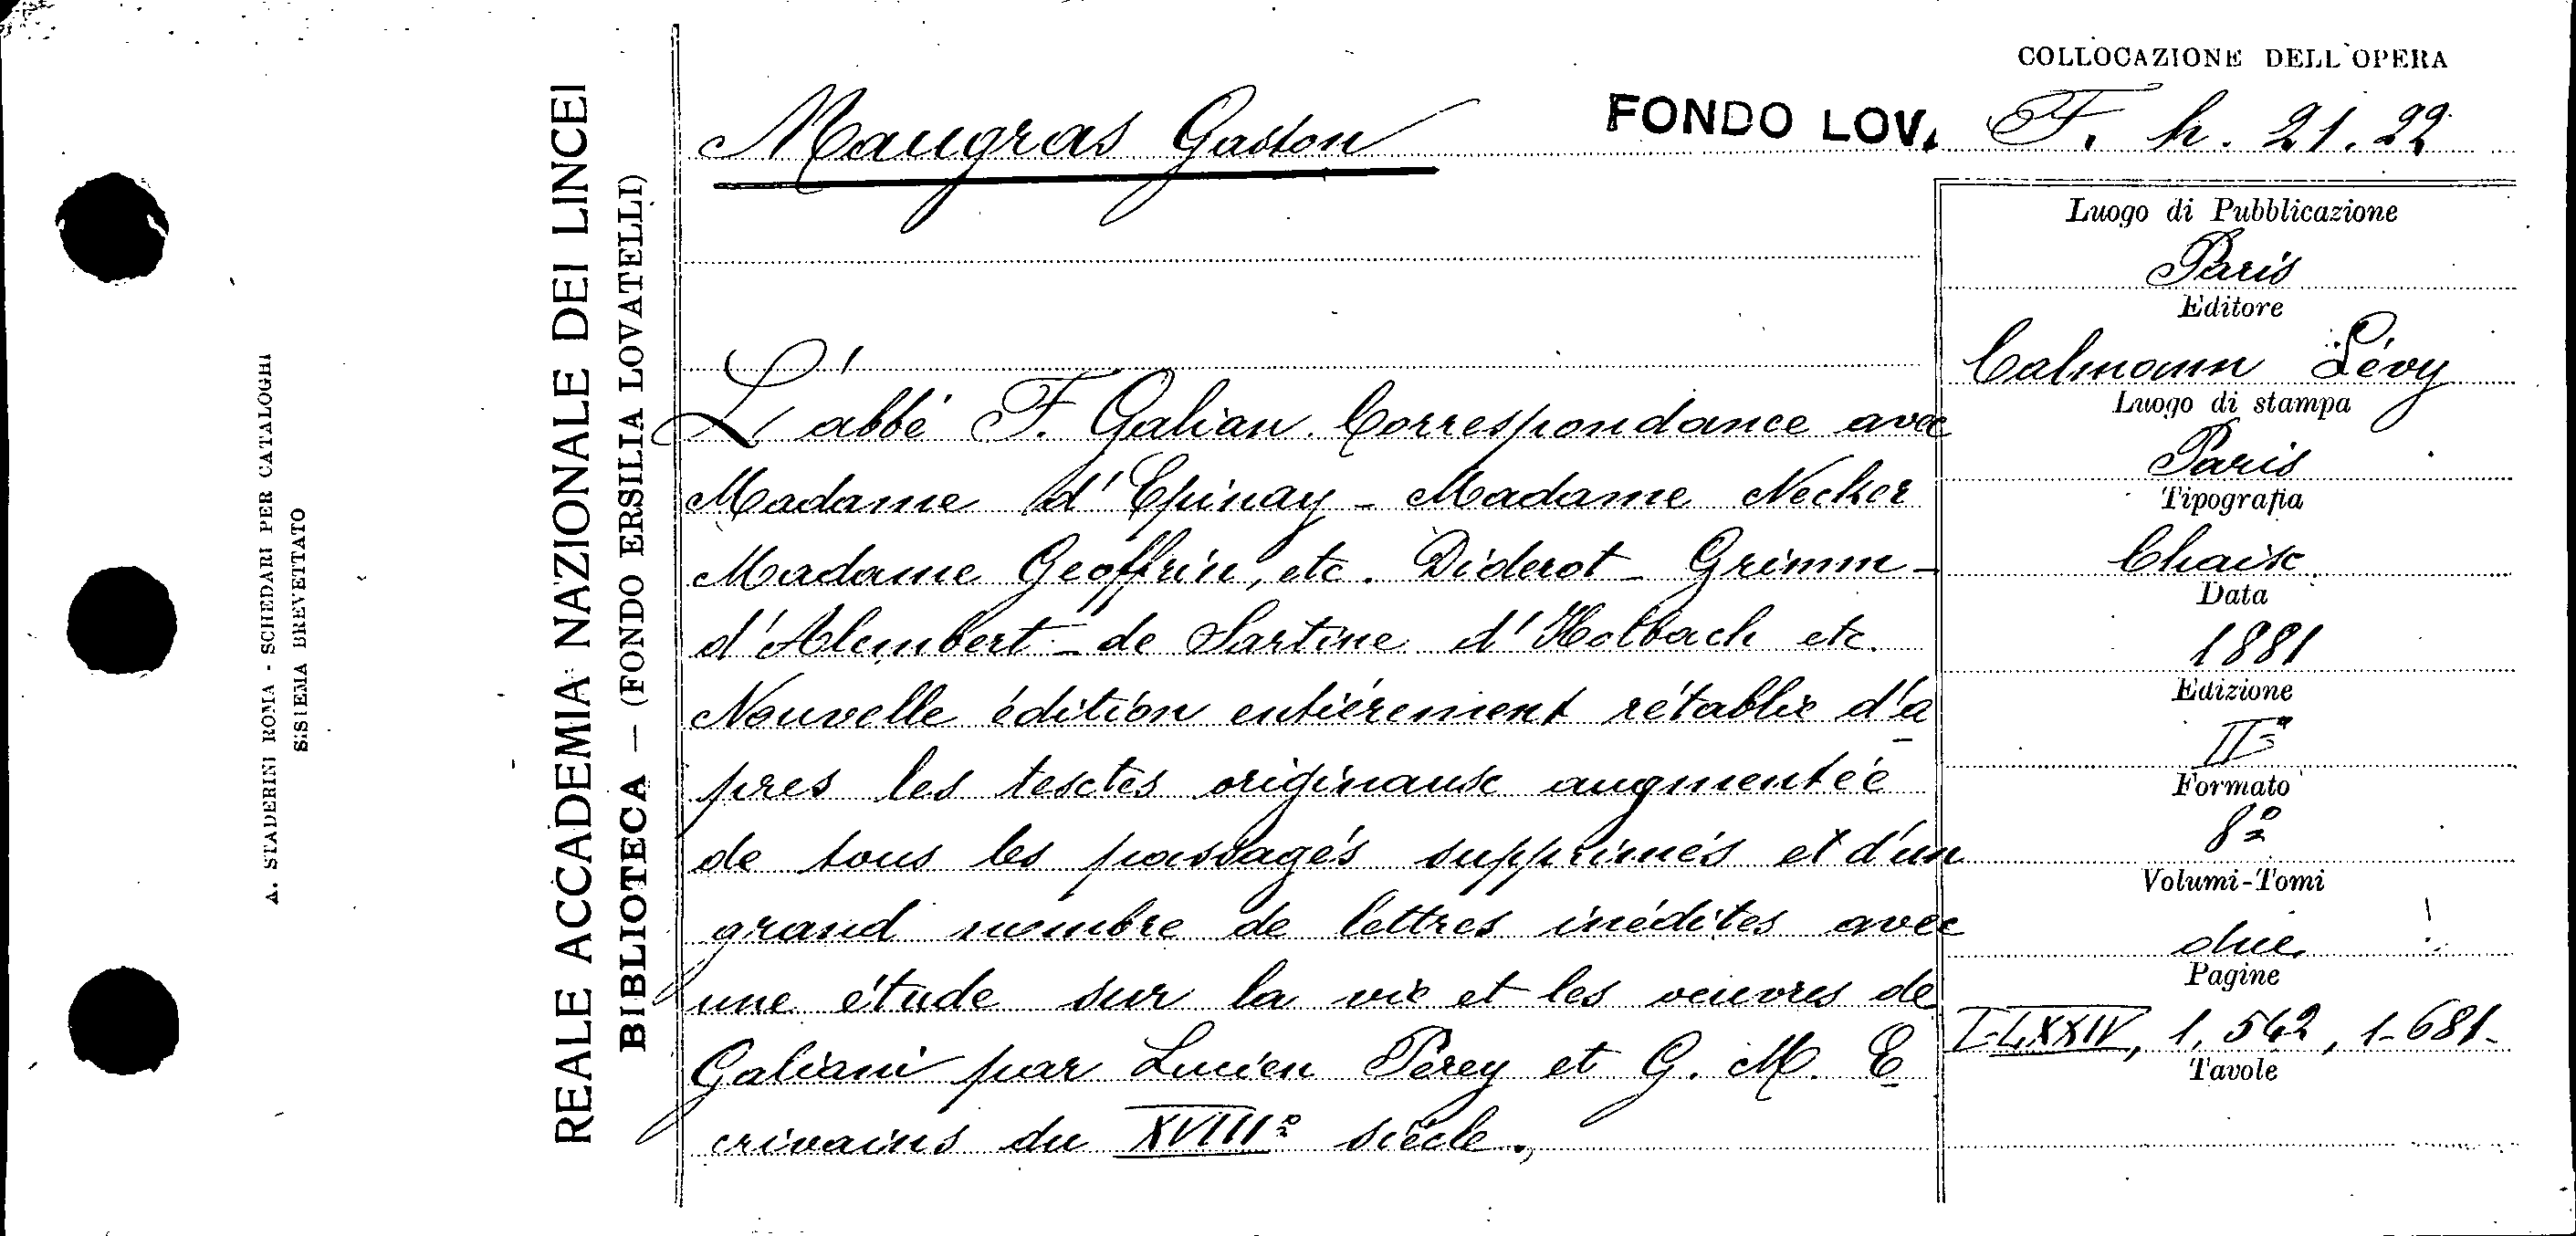 COLLOCAZIONE DELL'OPERA
Maugras Gaston
FONDO LOV. F. h. 21. 22
L'abbé F. Galian. Correspondance avec
Madame d'Epinay - Madame Necker
Madame Geoffrin, etc. Diderot - Grimm -
d'Alembert - de Sartine d'Holbach etc.
Nouvelle édition entiérement rétablie d'a
pres les textes originaux augmentée
de tous les passagés supprimés et d'un
grand nombre de lettres inédites avec
une étude sur la vie et les oeuvres de
Galiani par Lucien Perey et G. M. E
crivains du XVIIIº siécle.
Luogo di Pubblicazione
Paris
Editore
Calmann Lévy
Luogo di stampa
Paris
Tipografia
Chaix
Data
1881
Edizione
IIª
Formato
8º
Volumi-Tomi
due
Pagine
I-LXXIV, 1. 542, 1-681-
Tavole
REALE ACCADEMIA NAZIONALE DEI LINCEI
BIBLIOTECA — (FONDO ERSILIA LOVATELLI)
A. STADERINI ROMA - SCHEDARI PER CATALOGHI
SISTEMA BREVETTATO